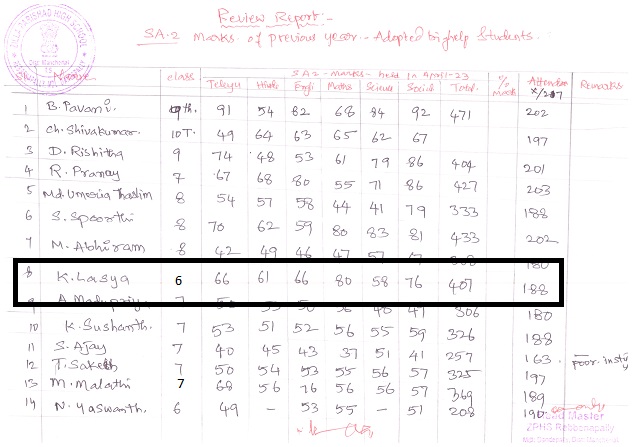 Review Report:-
SA-2 Marks of previous year. Adopted by help Students.
ZILLA PARISHAD HIGH SCHOOL
Name class SA2 - Marks - held in April-23 % Attendance Remarks
Telugu Hindi Engli Maths Science Social Total
1 B. Pavani. 10th. 91 54 82 68 84 92 471 202
2 Ch. Shivakumar. 10T. 49 64 63 65 62 67 197
3 D. Rishitha 9 74 48 53 61 79 86 404 201
4 R. Pranay 7 67 68 80 55 71 86 427 203
5 Md. Thaslim 8 54 57 58 44 41 79 333 188
6 S. Spoorthi 8 70 62 59 80 83 81 433 202
7 M. Abhiram 8 42 49 46 47 57 180
8 K. Lasya 6 66 61 66 80 58 76 407 188
9 7 306 180
10 K. Sushanth. 7 53 51 52 56 55 59 326 188
11 S. Ajay 7 40 45 43 37 51 41 257 163. poor.
12 T. Saketh 7 50 54 53 55 56 57 325 197
13 M. Malathi 7 68 56 76 56 56 57 369 189
14 N. Yaswanth. 6 49 - 53 55 - 51 208 190
Head Master
ZPHS Rebbenapally